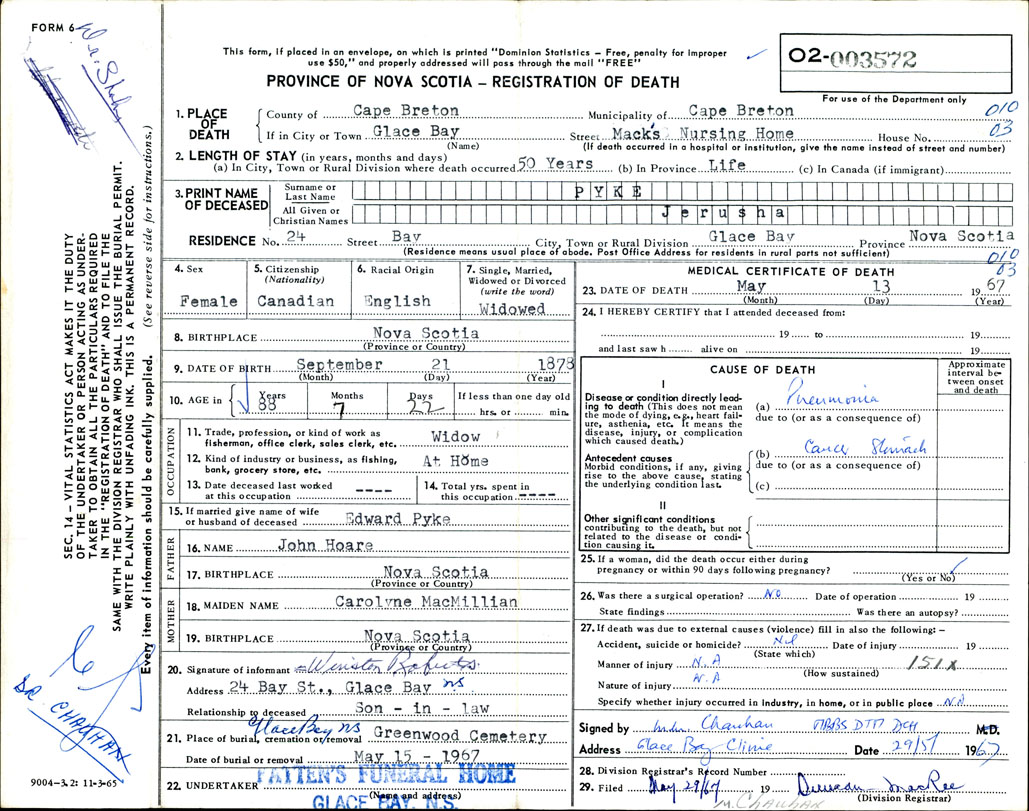 FORM 6
This form, if placed in an envelope, on which is printed "Dominion Statistics – Free, penalty for improper
use $50," and properly addressed will pass through the mail "FREE"
PROVINCE OF NOVA SCOTIA – REGISTRATION OF DEATH
02-003572
For use of the Department only
010
03
1. PLACE OF DEATH
County of Cape Breton Municipality of Cape Breton
If in City or Town Glace Bay Street Mack's Nursing Home House No.
(Name) (If death occurred in a hospital or institution, give the name instead of street and number)
2. LENGTH OF STAY (in years, months and days)
(a) In City, Town or Rural Division where death occurred 50 Years (b) In Province Life (c) In Canada (if immigrant)
3. PRINT NAME OF DECEASED
Surname or Last Name PYKE
All Given or Christian Names Jerusha
RESIDENCE No. 24 Street Bay City, Town or Rural Division Glace Bay Province Nova Scotia
(Residence means usual place of abode. Post Office Address for residents in rural parts not sufficient)
010
03
4. Sex
Female
5. Citizenship
(Nationality)
Canadian
6. Racial Origin
English
7. Single, Married,
Widowed or Divorced
(write the word)
Widowed
8. BIRTHPLACE Nova Scotia
(Province or Country)
9. DATE OF BIRTH September 21 1878
(Month) (Day) (Year)
10. AGE in Years Months Days If less than one day old
88 7 22 hrs. or min.
OCCUPATION
11. Trade, profession, or kind of work as
fisherman, office clerk, sales clerk, etc. Widow
12. Kind of industry or business, as fishing,
bank, grocery store, etc. At Home
13. Date deceased last worked
at this occupation ----
14. Total yrs. spent in
this occupation ----
15. If married give name of wife
or husband of deceased Edward Pyke
FATHER
16. NAME John Hoare
17. BIRTHPLACE Nova Scotia
(Province or Country)
MOTHER
18. MAIDEN NAME Carolyne MacMillian
19. BIRTHPLACE Nova Scotia
(Province or Country)
20. Signature of informant Winston Roberts
Address 24 Bay St., Glace Bay NS
Relationship to deceased Son - in - law
Glace Bay NS
21. Place of burial, cremation or removal Greenwood Cemetery
Date of burial or removal May 15 - 1967
22. UNDERTAKER PATTEN'S FUNERAL HOME
(Name and address)
GLACE BAY, N.S.
MEDICAL CERTIFICATE OF DEATH
23. DATE OF DEATH May 13 1967
(Month) (Day) (Year)
24. I HEREBY CERTIFY that I attended deceased from:
19 to 19
and last saw h alive on 19
CAUSE OF DEATH
Approximate
interval be-
tween onset
and death
I
Disease or condition directly lead-
ing to death (This does not mean
the mode of dying, e.g., heart fail-
ure, asthenia, etc. It means the
disease, injury, or complication
which caused death.)
(a) Pneumonia
due to (or as a consequence of)
Antecedent causes
Morbid conditions, if any, giving
rise to the above cause, stating
the underlying condition last.
(b) Cancer Stomach
due to (or as a consequence of)
(c)
II
Other significant conditions
contributing to the death, but not
related to the disease or condi-
tion causing it.
25. If a woman, did the death occur either during
pregnancy or within 90 days following pregnancy?
(Yes or No)
26. Was there a surgical operation? NO Date of operation 19
State findings Was there an autopsy?
27. If death was due to external causes (violence) fill in also the following: –
Accident, suicide or homicide? Nil Date of injury 19
(State which)
Manner of injury N.A 151X
(How sustained)
Nature of injury N.A
Specify whether injury occurred in industry, in home, or in public place N.A
Signed by Chauhan MBBS DTM DCH M.D.
Address Glace Bay Clinic Date 29/5/ 1967
28. Division Registrar's Record Number
29. Filed May 29/67 19 Duncan MacRae
(Division Registrar)
M. Chauhan
SEC. 14 – VITAL STATISTICS ACT MAKES IT THE DUTY
OF THE UNDERTAKER OR PERSON ACTING AS UNDER-
TAKER TO OBTAIN ALL THE PARTICULARS REQUIRED
IN THE "REGISTRATION OF DEATH" AND TO FILE THE
SAME WITH THE DIVISION REGISTRAR WHO SHALL ISSUE THE BURIAL PERMIT.
WRITE PLAINLY WITH UNFADING INK. THIS IS A PERMANENT RECORD.
Every item of information should be carefully supplied. (See reverse side for instructions.)
DR. CHAUHAN
9004-3.2: 11-3-65